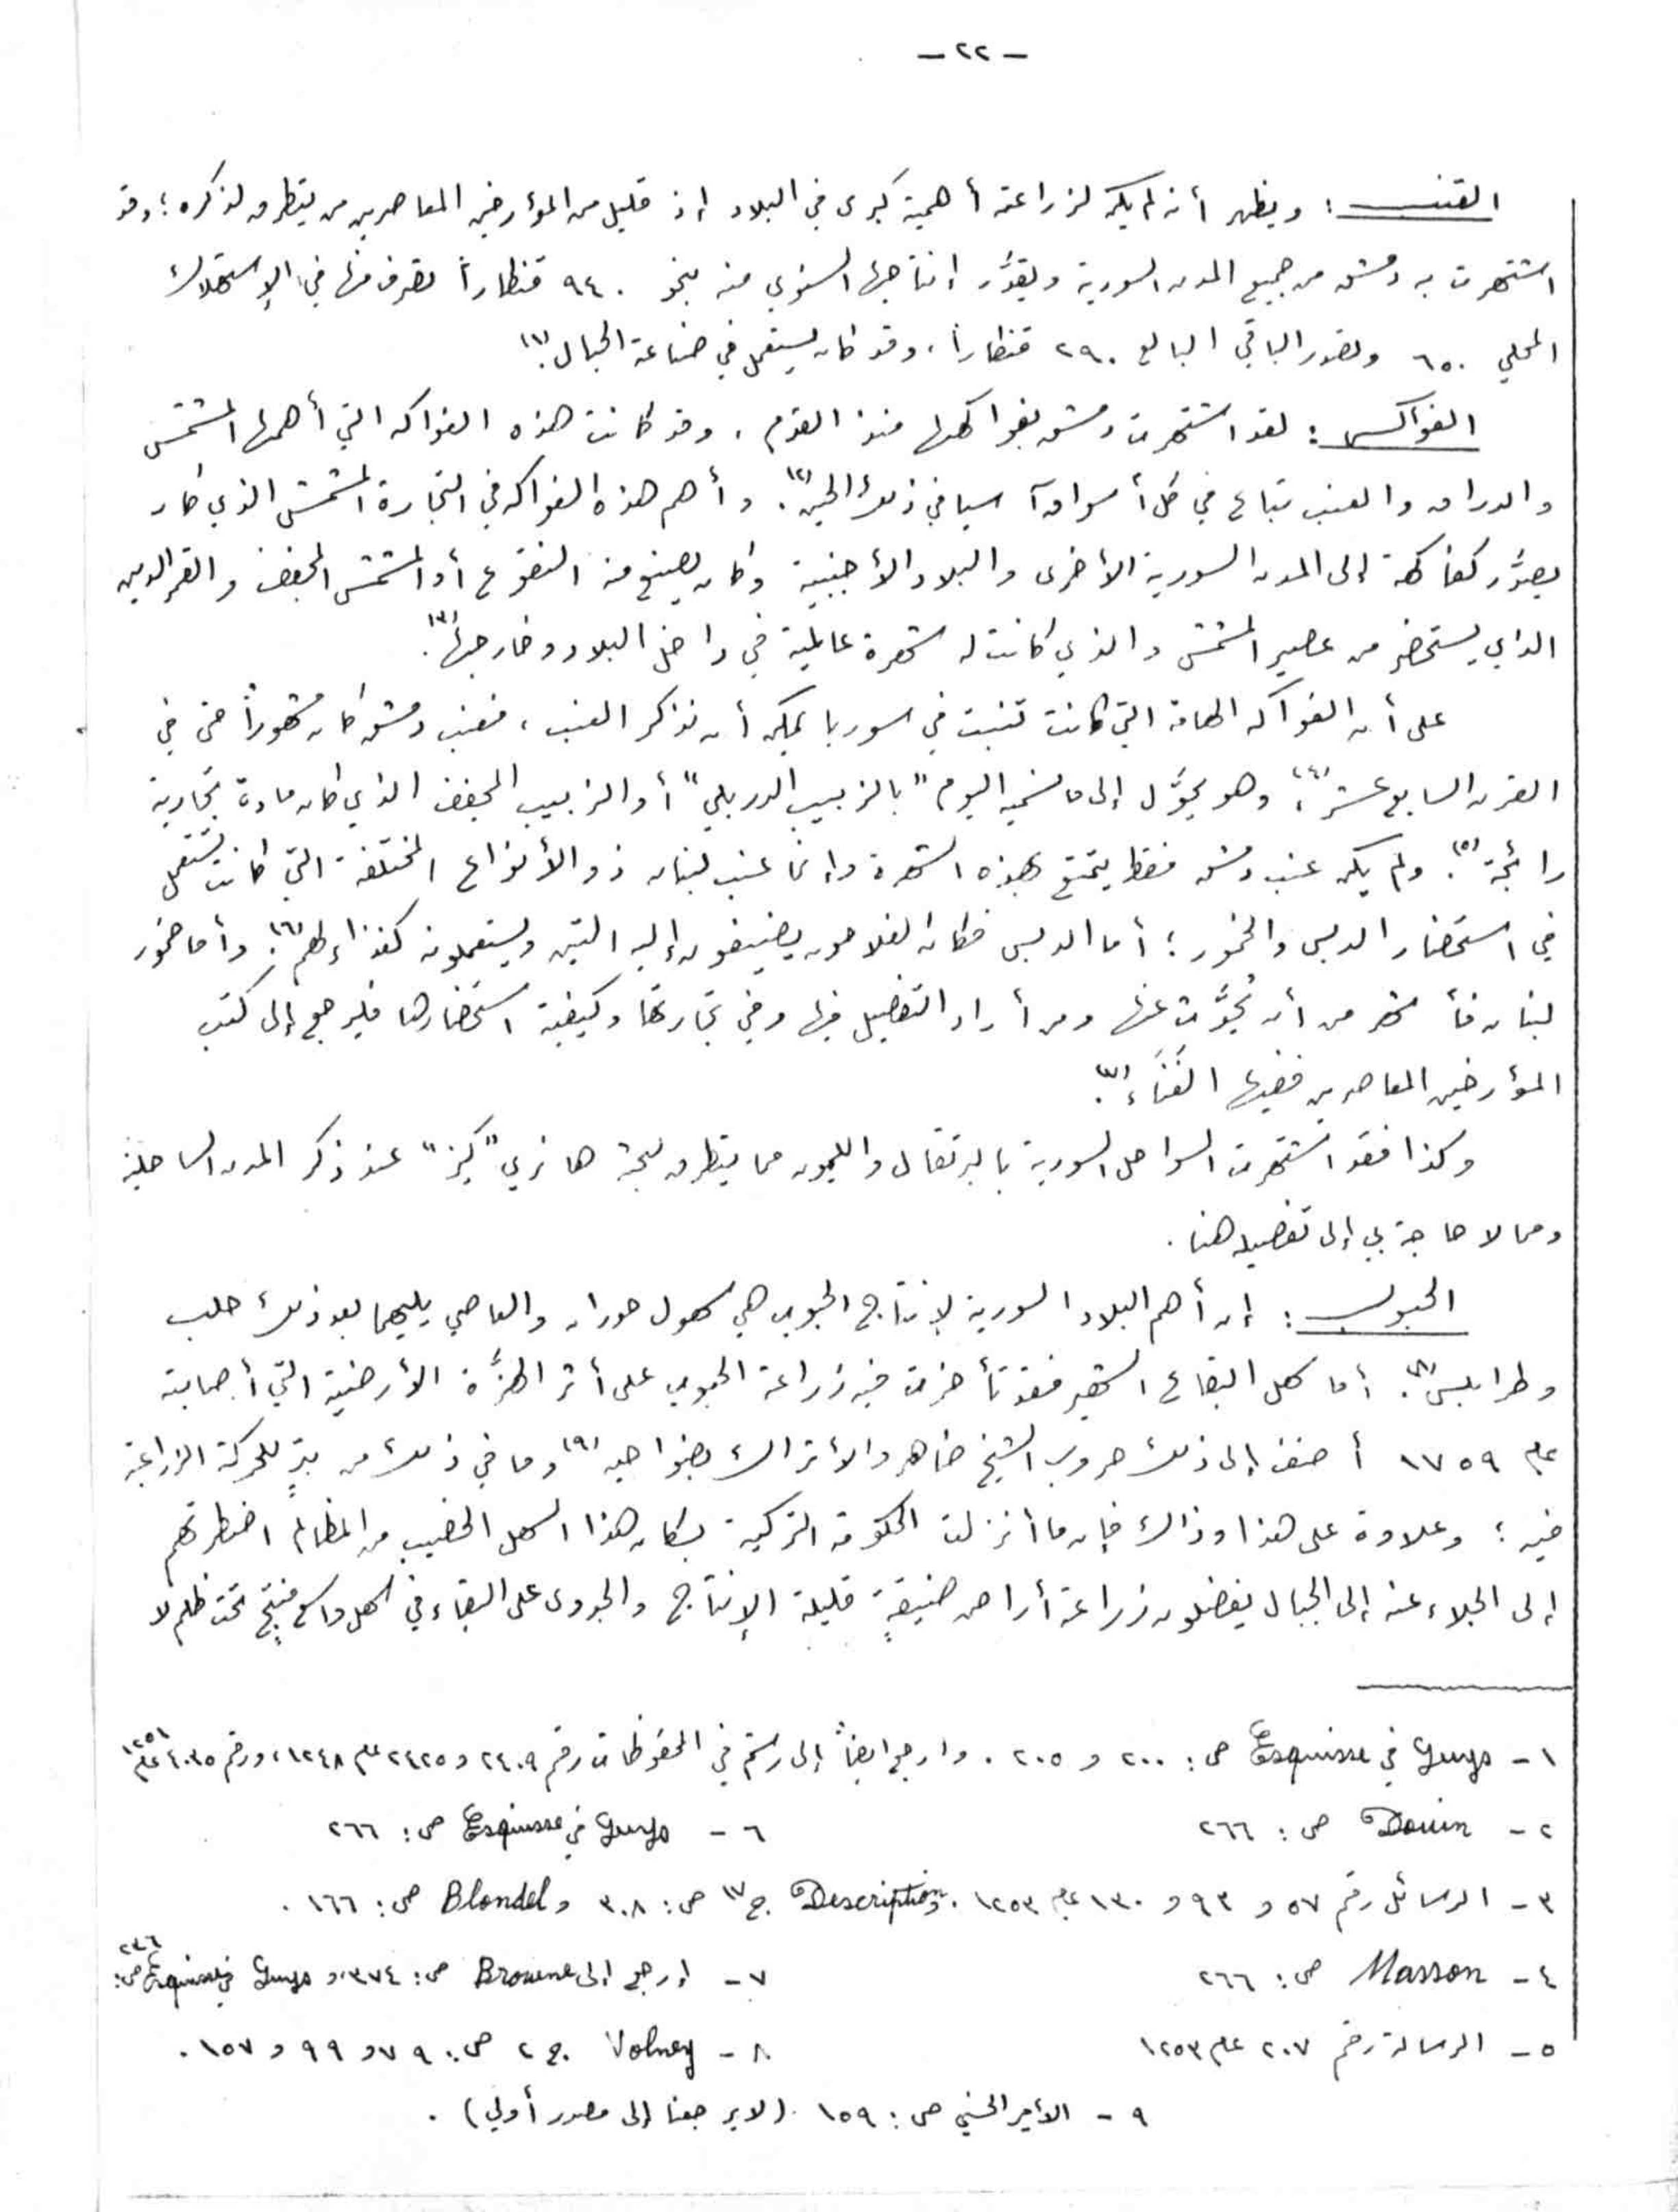 - ٢٢ -
القنب : ويظهر أنه لم يكن لزراعته أهمية كبرى في البلاد إذ قليل من المؤرخين المعاصرين من يتطرق لذكره ؛ وقد
اشتهرت به دمشق من جميع المدن السورية ويقدَّر إنتاجها السنوي منه بنحو ٩٤٠ قنطاراً يصرف منها في الإستهلاك
المحلي ٦٥٠ ويصدر الباقي البالغ ٢٩٠ قنطاراً ، وقد كان يستعمل في صناعة الحبال (١).
الفواكه : لقد اشتهرت دمشق بفواكهها منذ القدم ، وقد كانت هذه الفواكه التي أهمها المشمش
والدراق والعنب تباع في كل أسواق آسيا في ذلك الحين (٢). وأهم هذه الفواكه في التجارة المشمش الذي كان
يصدَّر كفاكهة إلى المدن السورية الأخرى والبلاد الأجنبية وكان يصنع منه النقوع أو المشمش المجفف والقمر الدين
الذي يستحضر من عصير المشمش والذي كانت له شهرة عالمية في داخل البلاد وخارجها (٣).
على أن الفواكه الهامة التي كانت تنبت في سوريا يمكن أن نذكر العنب ، فعنب دمشق كان مشهوراً حتى في
القرن السابع عشر (٤) ، وهو يحوَّل إلى ما نسميه اليوم "بالزبيب الدربلي" أو الزبيب المجفف الذي كان مادة تجارية
رائجة (٥). ولم يكن عنب دمشق فقط يتمتع بهذه الشهرة وإنما عنب لبنان ذو الأنواع المختلفة التي كانت تستعمل
في استحضار الدبس والخمور ؛ أما الدبس فكان الفلاحون يضيفون إليه التين ويستعملونه كغذاء لهم (٦). وأما خمور
لبنان فأشهر من أن يُحدَّث عنها ومن أراد التفصيل فيها وفي تجارتها وكيفية استحضارها فليرجع إلى كتب
المؤرخين المعاصرين ففيها الغَنَاء (٧).
وكذا فقد اشتهرت السواحل السورية بالبرتقال والليمون مما يتطرق لبحثه هانري "كيز" عند ذكر المدن الساحلية
ومما لا حاجة بي إلى تفصيله هنا .
الحبوب : إن أهم البلاد السورية لإنتاج الحبوب هي سهول حوران والعاصي يليهما بعد ذلك حلب
وطرابلس (٨). أما سهل البقاع الشهير فقد تأخرت فيه زراعة الحبوب على أثر الهزَّة الأرضية التي أصابته
عام ١٧٥٩ أضف إلى ذلك حروب الشيخ ضاهر والأتراك بضواحيه (٩) وما في ذلك من بترٍ للحركة الزراعية
فيه ؛ وعلاوة على هذا وذاك فإن ما أنزلت الحكومة التركية بسكان هذا السهل الخصيب من المظالم اضطرتهم
إلى الجلاء عنه إلى الجبال يفضلون زراعة أراض ضيقةٍ قليلة الإنتاج والجدوى على البقاء في سهل واسع منتجٍ تحت ظلم لا
١ - Guys في Esquisse ص : ٢٠٠ و ٢٠٥ . وارجع ايضاً إلى رستم في المحفوظات رقم ٢٤٠٩ و ٢٤٢٥ عام ١٢٤٨ ، ورقم ٤٠٣٥ عام ١٢٥١
٢ - Douin ص : ٢٦٦
٦ - Guys في Esquisse ص : ٢٦٦
٣ - الرسائل رقم ٥٧ و ٩٣ و ١٣٠ عام ١٢٥٣ . و Description ج ١٧ ص : ٣٠٨ و Blondel ص : ١٦٦ .
٤ - Masson ص : ٢٦٦
٧ - إرجع إلى Browne ص : ٣٧٤ ، و Guys في Esquisse ص : ٢٣٦
٥ - الرسالة رقم ٢٠٧ عام ١٢٥٣
٨ - Volney ج ٢ ص : ٧٩ و ٩٩ و ١٥٧ .
٩ - الأمير الحسني ص : ١٥٩ (لا يرجعنا إلى مصدر أولي) .